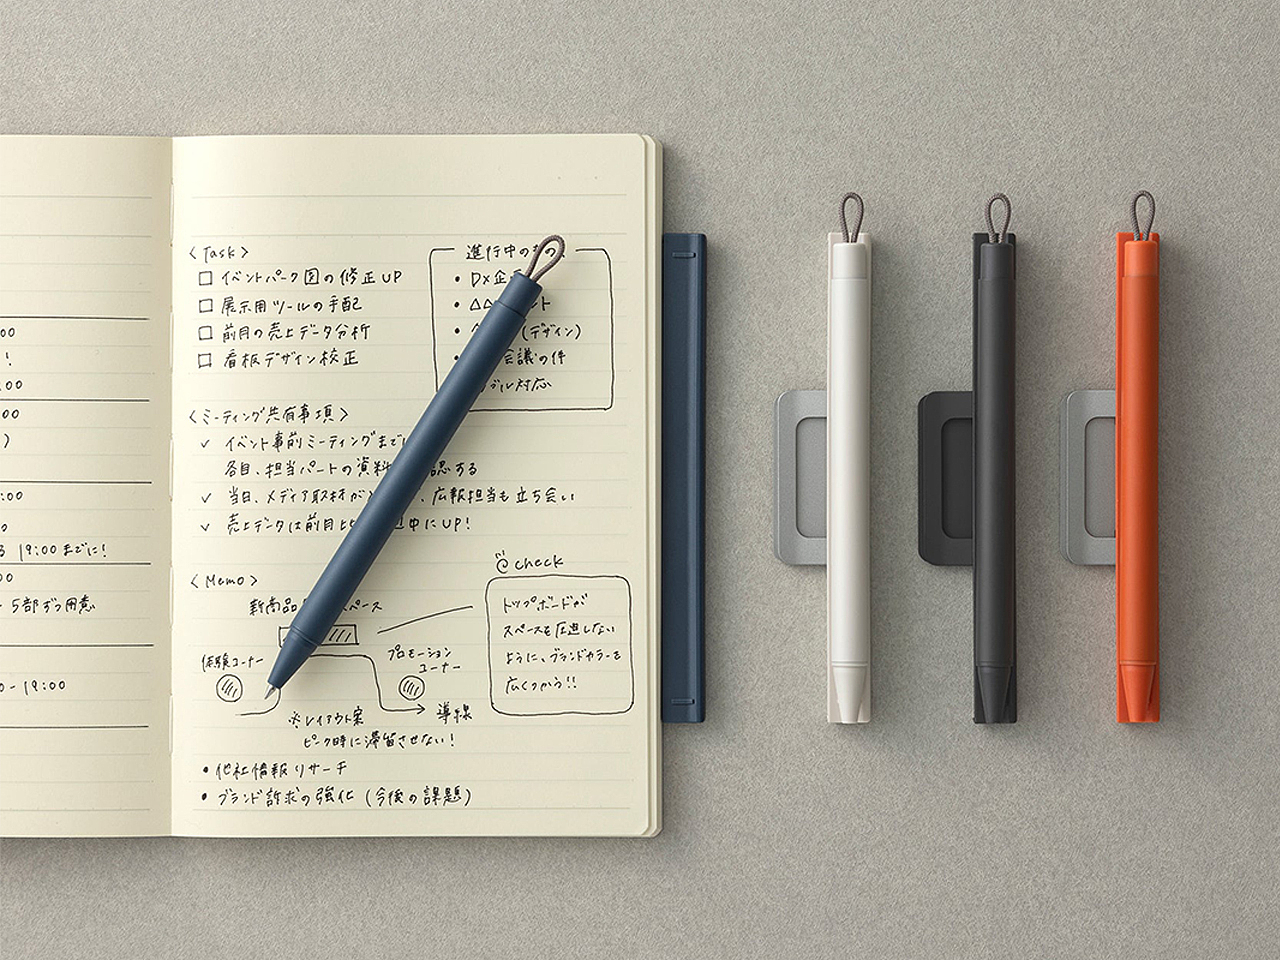 :00
!
:00
:00
)
:00
19:00までに!
:00
5部ずつ用意
0-19:00
<Task>
□ イベントパーク図の修正UP
□ 展示用ツールの手配
□ 前月の売上データ分析
□ 看板デザイン校正
進行中のもの
• DX企
• △△ ント
• (デザイン)
• 会議の件
ブル対応
<ミーティング共有事項>
✓ イベント事前ミーティングまでに
各自、担当パートの資料 認する
✓ 当日、メディア取材が 、広報担当も立ち会い
✓ 売上データは前月比 中にUP!
<Memo>
新商品 スペース
体験コーナー
プロモーションコーナー
導線
※レイアウト案
ピーク時に滞留させない!
check
トップボードが
スペースを圧迫しない
ように、ブランドカラーを
広くつかう!!
• 他社情報リサーチ
• ブランド訴求の強化 (今後の課題)